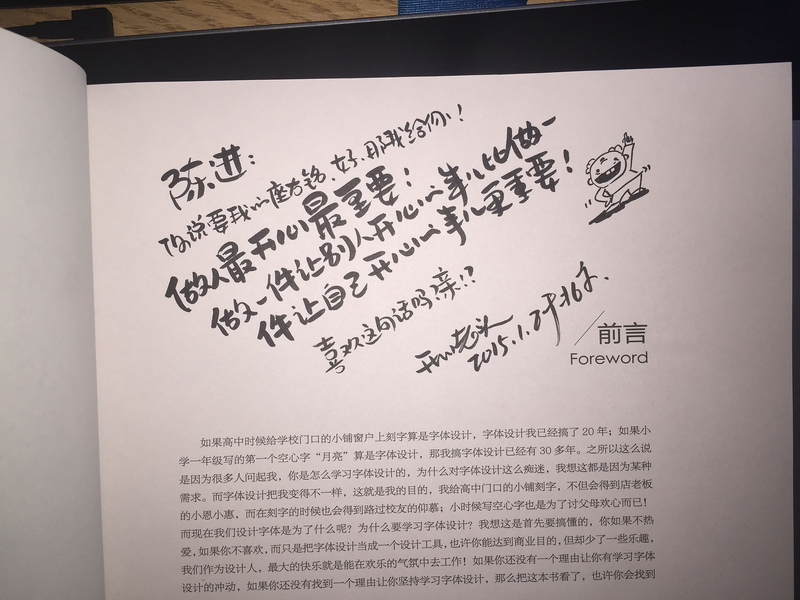 陈进:
你说要我的座右铭、好、那我给你!
做人最开心最重要:
做一件让别人开心的事儿比做一
件让自己开心的事儿更重要!
喜欢这句话吗亲!?
2015.1.
前言
Foreword
如果高中时候给学校门口的小铺窗户上刻字算是字体设计，字体设计我已经搞了 20 年；如果小
学一年级写的第一个空心字“月亮”算是字体设计，那我搞字体设计已经有 30 多年。之所以这么说
是因为很多人问起我，你是怎么学习字体设计的，为什么对字体设计这么痴迷，我想这都是因为某种
需求。而字体设计把我变得不一样，这就是我的目的，我给高中门口的小铺刻字，不但会得到店老板
的小恩小惠，而在刻字的时候也会得到路过校友的仰慕；小时候写空心字也是为了讨父母欢心而已！
而现在我们设计字体是为了什么呢？为什么要学习字体设计？我想这是首先要搞懂的，你如果不热
爱，如果你不喜欢，而只是把字体设计当成一个设计工具，也许你能达到商业目的，但却少了一些乐趣，
我们作为设计人，最大的快乐就是能在欢乐的气氛中去工作！如果你还没有一个理由让你有学习字体
设计的冲动，如果你还没有找到一个理由让你坚持学习字体设计，那么把这本书看了，也许你会找到